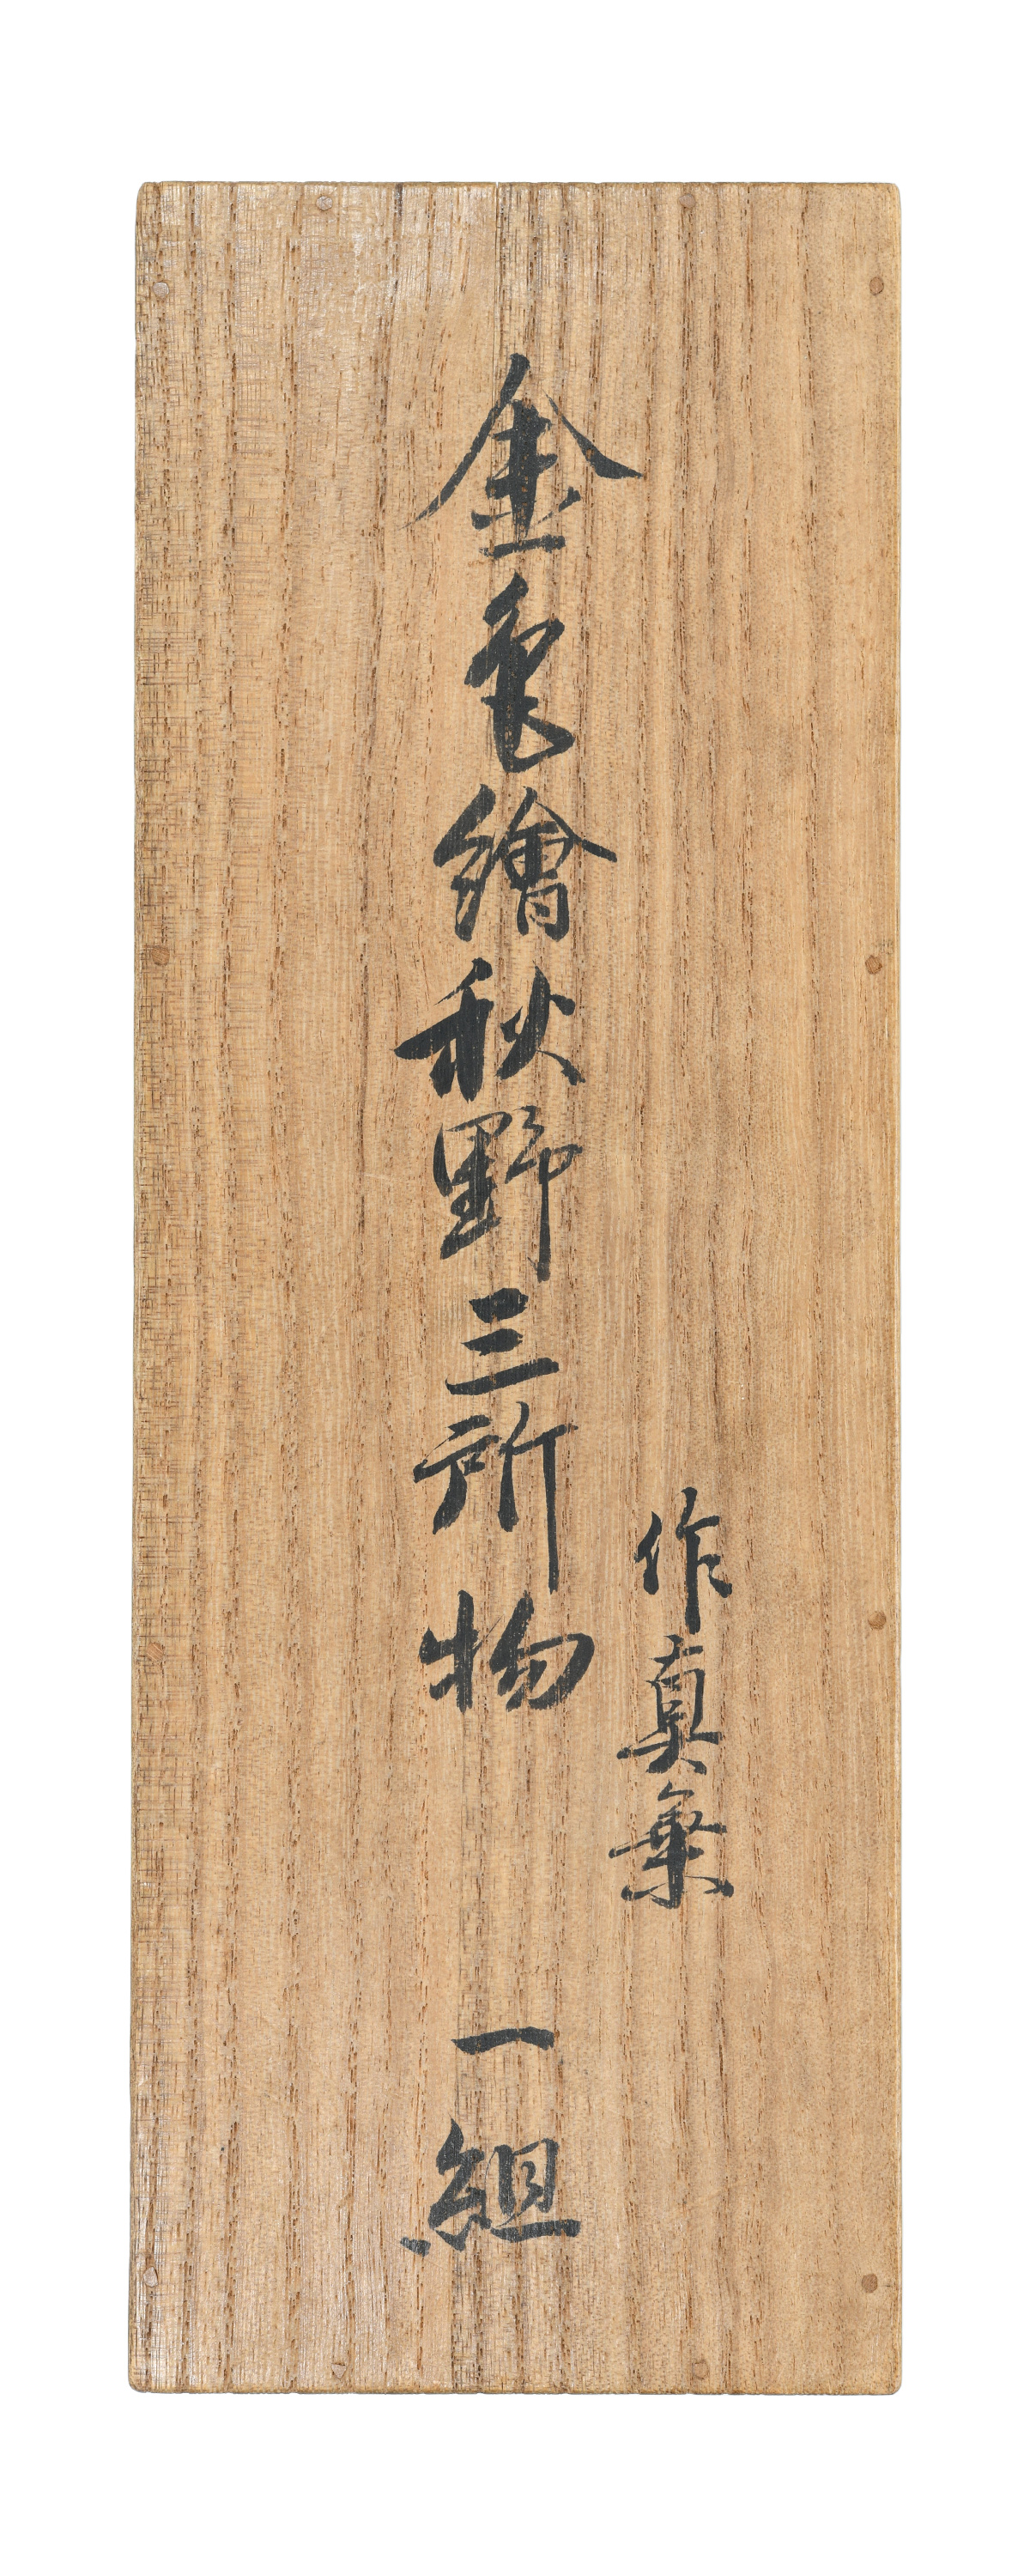 作真乗
金色繪秋野三所物 一組